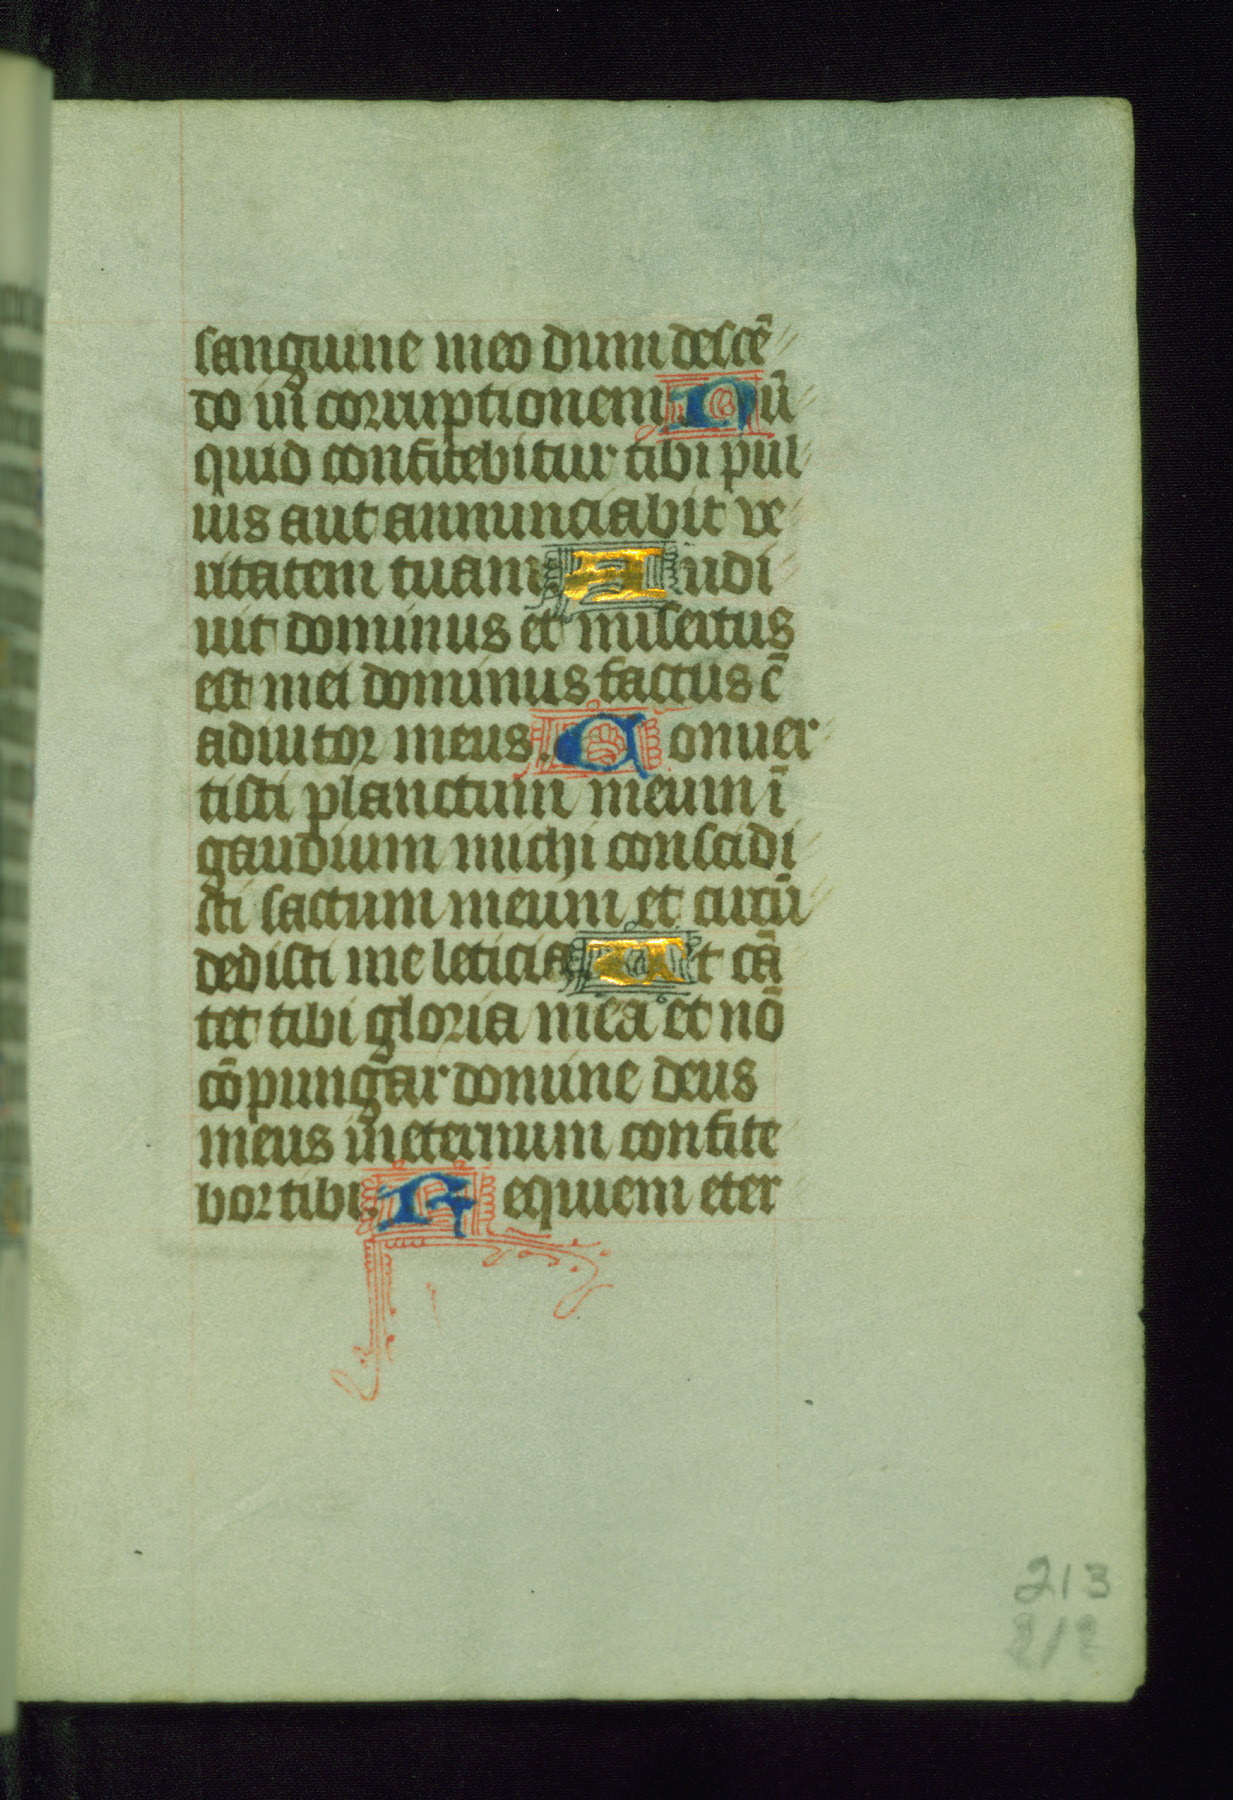 sanguine meo dum descē
do in corruptionem. Nū
quid confitebitur tibi pul
uis aut annunciabit ve
ritatem tuam. Audi
uit dominus et misertus
est mei dominus factus ē
adiutor meus. Conuer
tisti planctum meum ī
gaudium michi conscidi
sti sactum meum et circū
dedisti me leticia. Ut cā
tet tibi gloria mea et nō
cōpungar domine deus
meus in eternum confite
bor tibi. Requiem eter
213